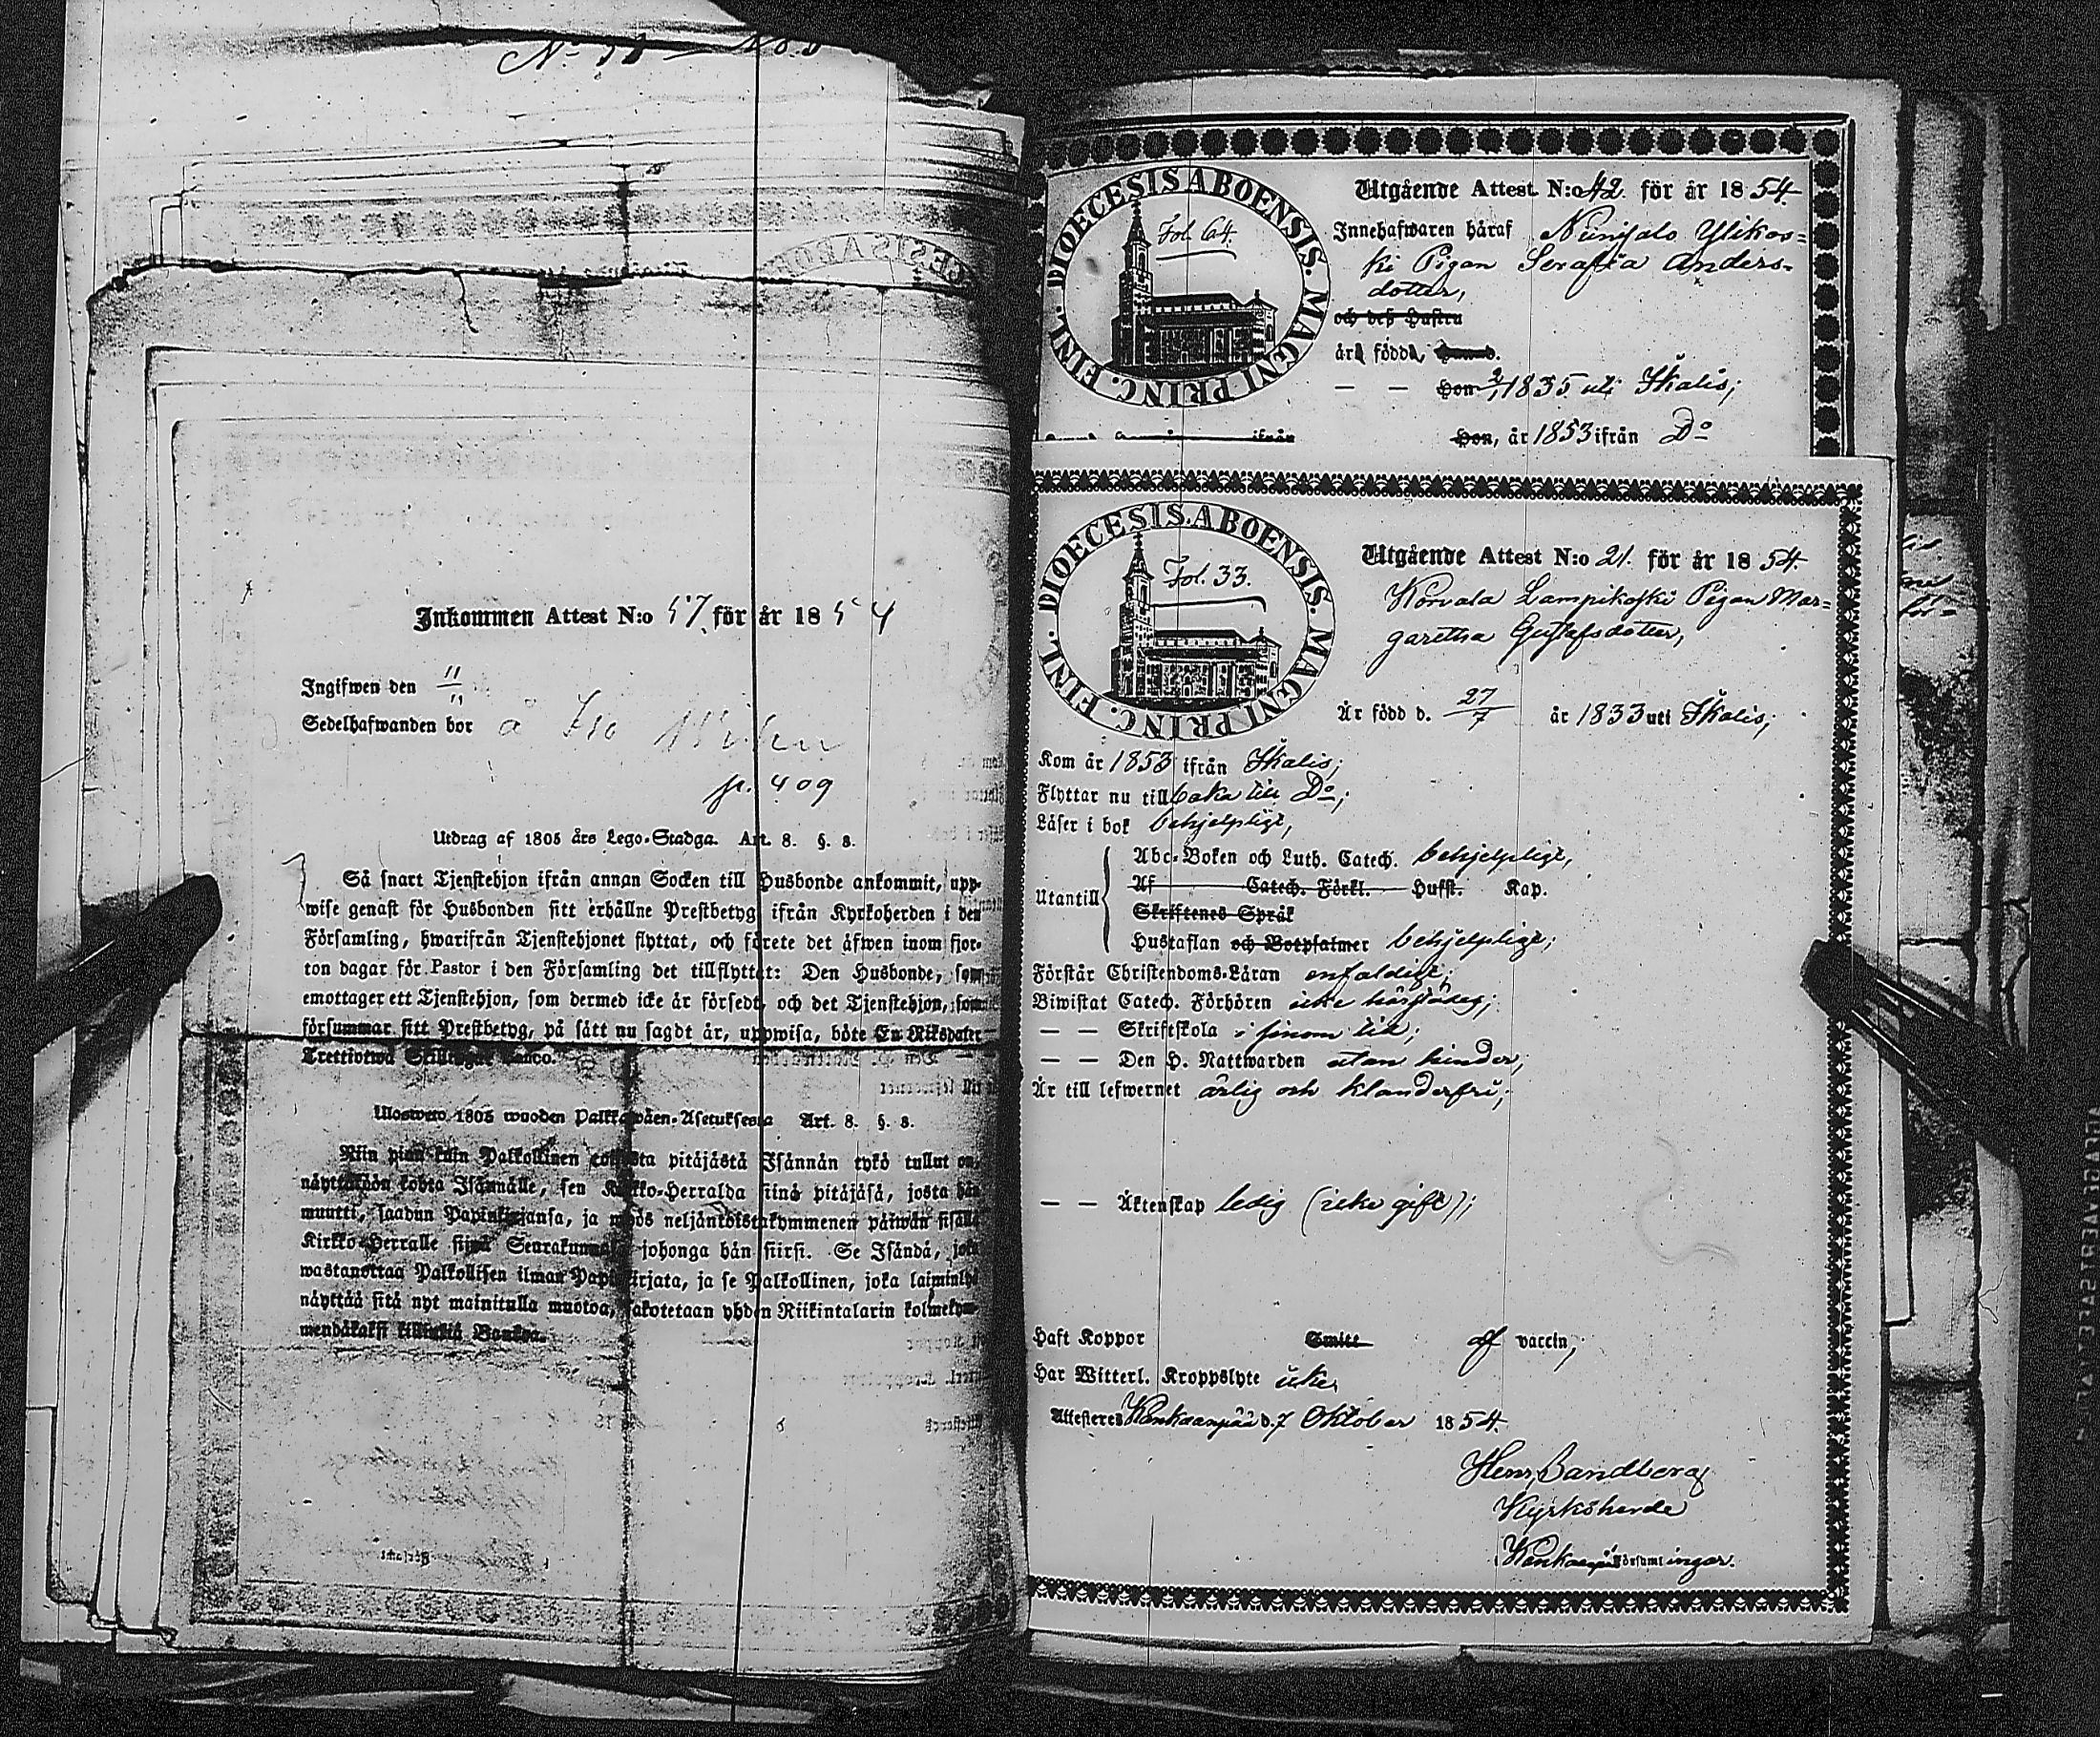 Inkommen Attest N:o 57 för år 1854
Ingifwen den 11/11
Sedelhafwanden bor å Iso
p. 409
Utdrag af 1805 års Lego-Stadga. Art. 8. §. 8.
Så snart Tjenstehjon ifrån annan Socken till Husbonde ankommit, upp-
wise genast för Husbonden sitt erhållne Prestbetyg ifrån Kyrkoherden i den
Församling, hwarifrån Tjenstehjonet flyttat, och förete det äfwen inom fjor-
ton dagar för Pastor i den Församling det tillflyttat: Den Husbonde, som
emottager ett Tjenstehjon, som dermed icke är försedt, och det Tjenstehjon, som
försummar sitt Prestbetyg, på sätt nu sagdt är, uppwisa, böte En Riksdaler
Trettiotwå Skillingar Banco.
Ulosweto 1805 wuoden Palkkawäen-Asetuksesta Art. 8. §. 8.
Niin pian kuin Palkollinen toisesta pitäjästä Isännän tykö tullut on,
näyttäköön kohta Isännälle, sen Kirkko-Herralda siinä pitäjäsä, josta hän
muutti, saadun Papinkirjansa, ja myös neljäntoistakymmenen päiwän sisällä
Kirkko-Herralle siinä Seurakunnasa johonga hän siirsi. Se Isändä, joka
wastanottaa Palkollisen ilman Papinkirjata, ja se Palkollinen, joka laiminlyö
näyttää sitä nyt mainitulla muotoa, sakotetaan yhden Riikintalarin kolmekym-
mendäkaksi killinkiä Bankoa.
DIOECESIS ABOENSIS. MAGNI PRINC. FINL.
Fol. 64.
Utgående Attest N:o 42. för år 1854.
Innehafwaren häraf Ylikos-
ki Pigan Serafia Anders-
dotter,
och deß Hustru
är född,
— — Hon 1835 uti Ikalis;
Hon, år 1853 ifrån Do
DIOECESIS ABOENSIS. MAGNI PRINC. FINL.
Fol. 33.
Utgående Attest N:o 21. för år 1854.
Korvala Lampikoski Pigan Mar-
garetha Gustafsdotter,
Är född d. 27/7 år 1833 uti Ikalis;
Kom år 1853 ifrån Ikalis;
Flyttar nu tillbaka till Do;
Läser i bok behjelpligt,
Utantill
Abc-Boken och Luth. Catech. behjelpligt,
Af Catech. Förkl. Hufst. Kap.
Skriftenes Språk
Hustaflan och Botpsalmer behjelpligt;
Förstår Christendoms-Läran enfaldigt;
Biwistat Catech. Förhören icke härstädes;
— — Skriftskola i sinom tid;
— — Den H. Nattwarden utan hinder;
Är till lefwernet ärlig och klanderfri;
— — Äktenskap ledig (icke gift);
Haft Koppor Smitt af vaccin;
Har Witterl. Kroppslyte icke,
Attesteres Kankaanpää d. 7 Oktober 1854.
Henr. Sandberg
Kyrkoherde
Kankaanpää Församlingar.